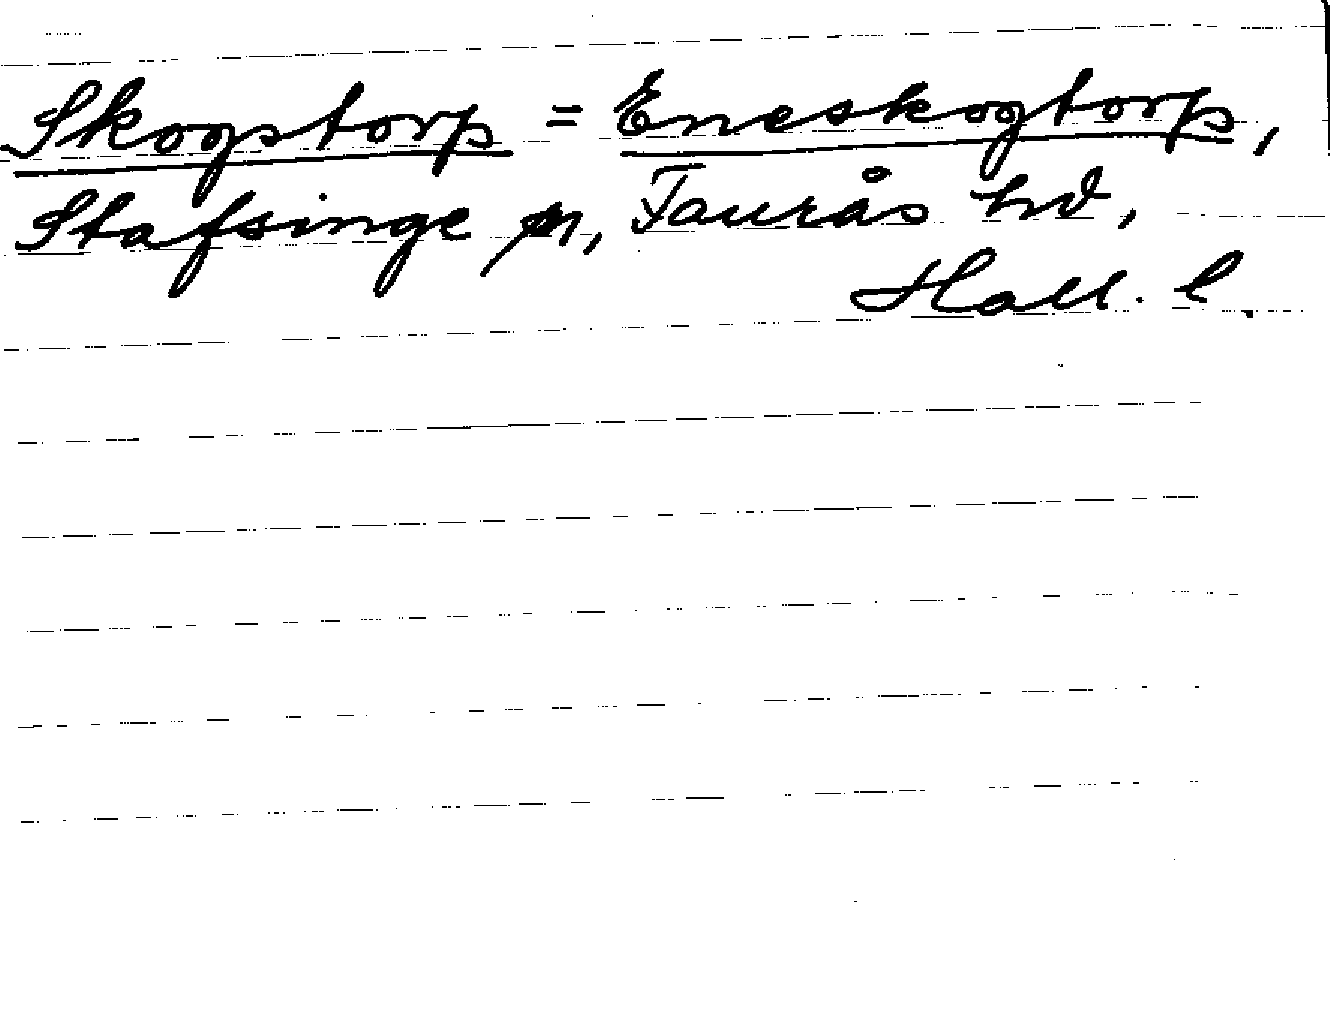 Skogstorp = Eneskogtorp,
Stafsinge sn, Faurås hd,
Hall. l.